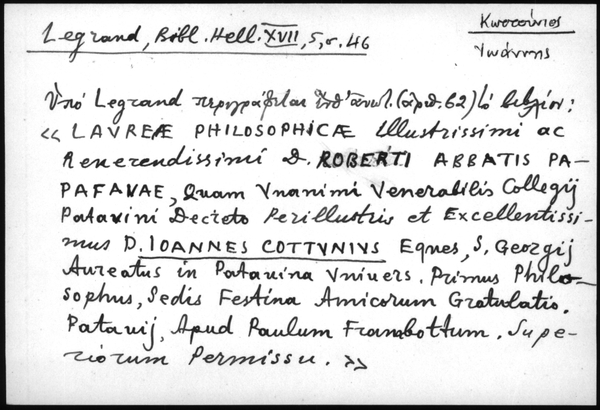 Legrand, Bibl. Hell. XVII, 5, σ. 46
Κωττούνιος
Ἰωάννης
Ὑπό Legrand περιγράφεται ὑπ' (ἀρθ. 62) τό βιβλίον:
« LAVREÆ PHILOSOPHICÆ Illustrissimi ac
Reverendissimi D. ROBERTI ABBATIS PA-
PAFAVAE, Quam Vnanimi Venerabilis Collegij
Patavini Decreto Perillustris et Excellentissi-
mus D. IOANNES COTTVNIVS Eques, S. Georgij
Aureatus in Patavina Vnivers. Primus Philo-
sophus, Sedis Festina Amicorum Gratulatio.
Patavij, Apud Paulum Frambottum. Supe-
riorum Permissu. »